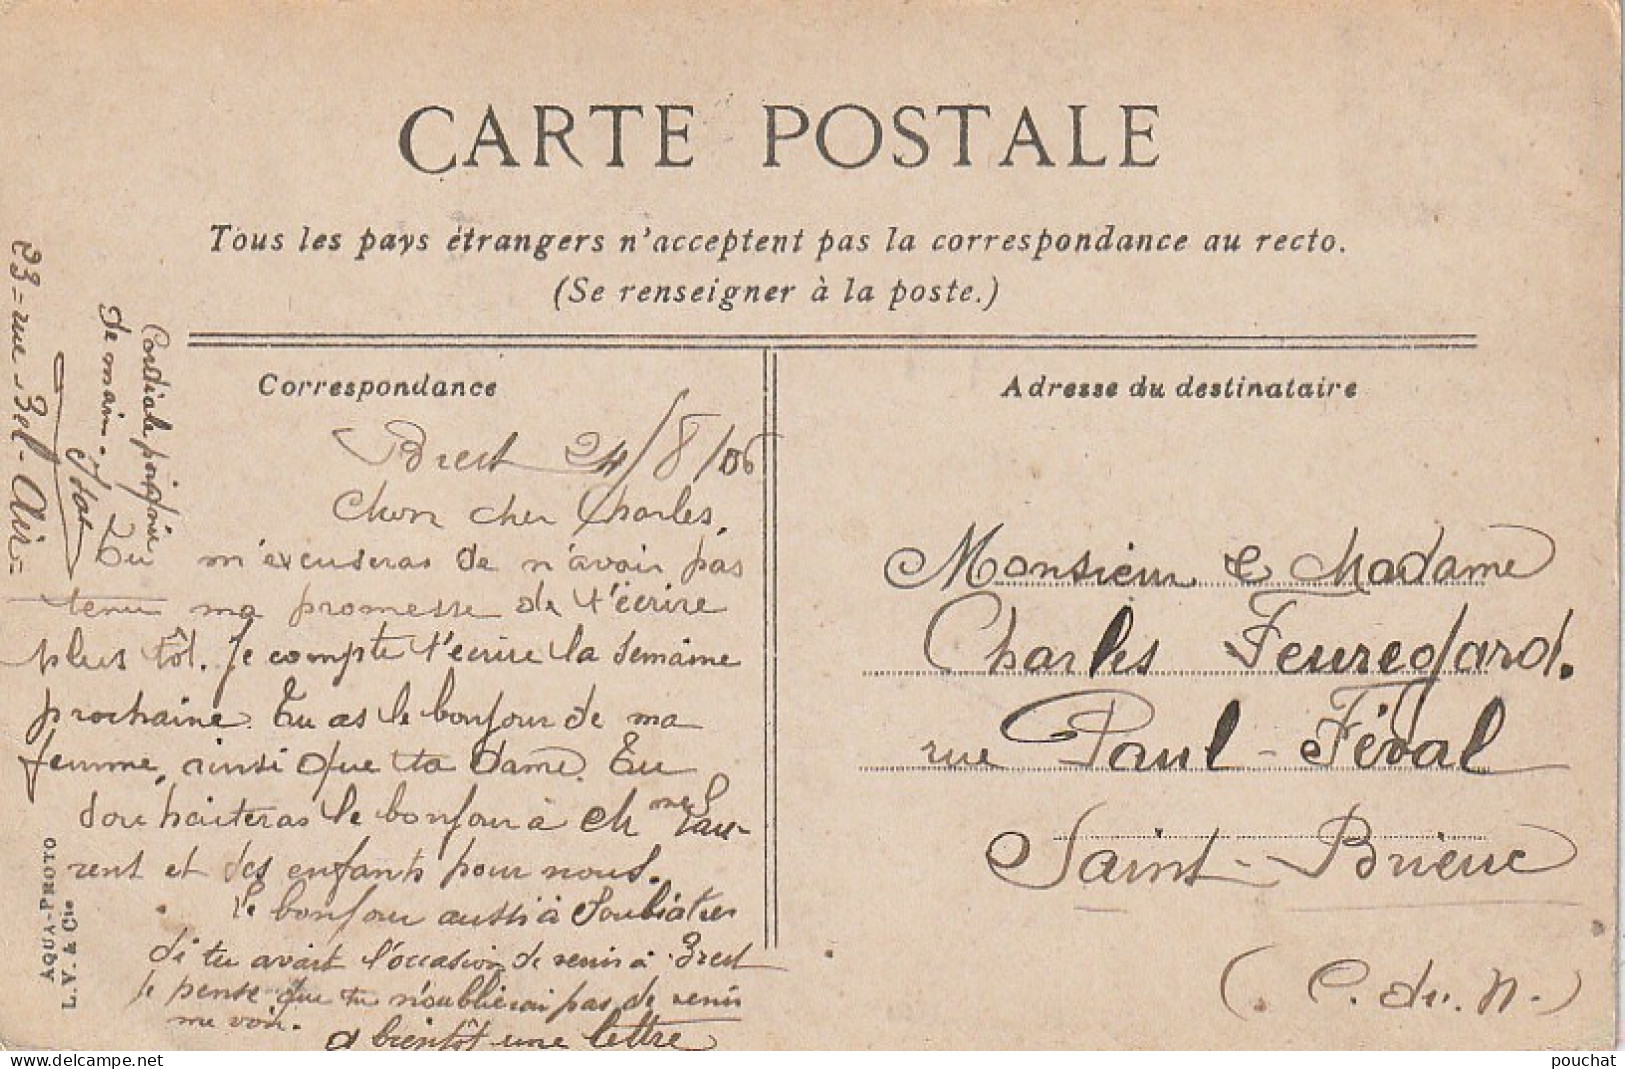 CARTE POSTALE
Tous les pays étrangers n'acceptent pas la correspondance au recto.
(Se renseigner à la poste.)
Correspondance
Brest 24/8/06
Mon cher Charles,
Tu m'excuseras de n'avoir pas
tenu ma promesse de t'écrire
plus tôt. Je compte t'écrire la semaine
prochaine. Tu as le bonjour de ma
femme, ainsi que ta dame. Tu
souhaiteras le bonjour à Mme Lau-
rent et des enfants pour nous.
le bonjour aussi à
si tu avait l'occasion de venir à Brest
je pense que tu n'oublierai pas de venir
me voir.
a bientôt une lettre
Cordiale poignée
de main.
23 = rue Bel-Air =
Adresse du destinataire
Monsieur e Madame
Charles Feuregard.
rue Paul-Féval
Saint-Brieuc
(C. du. N.)
AQUA-PHOTO
L.V. & Cie
pouchat